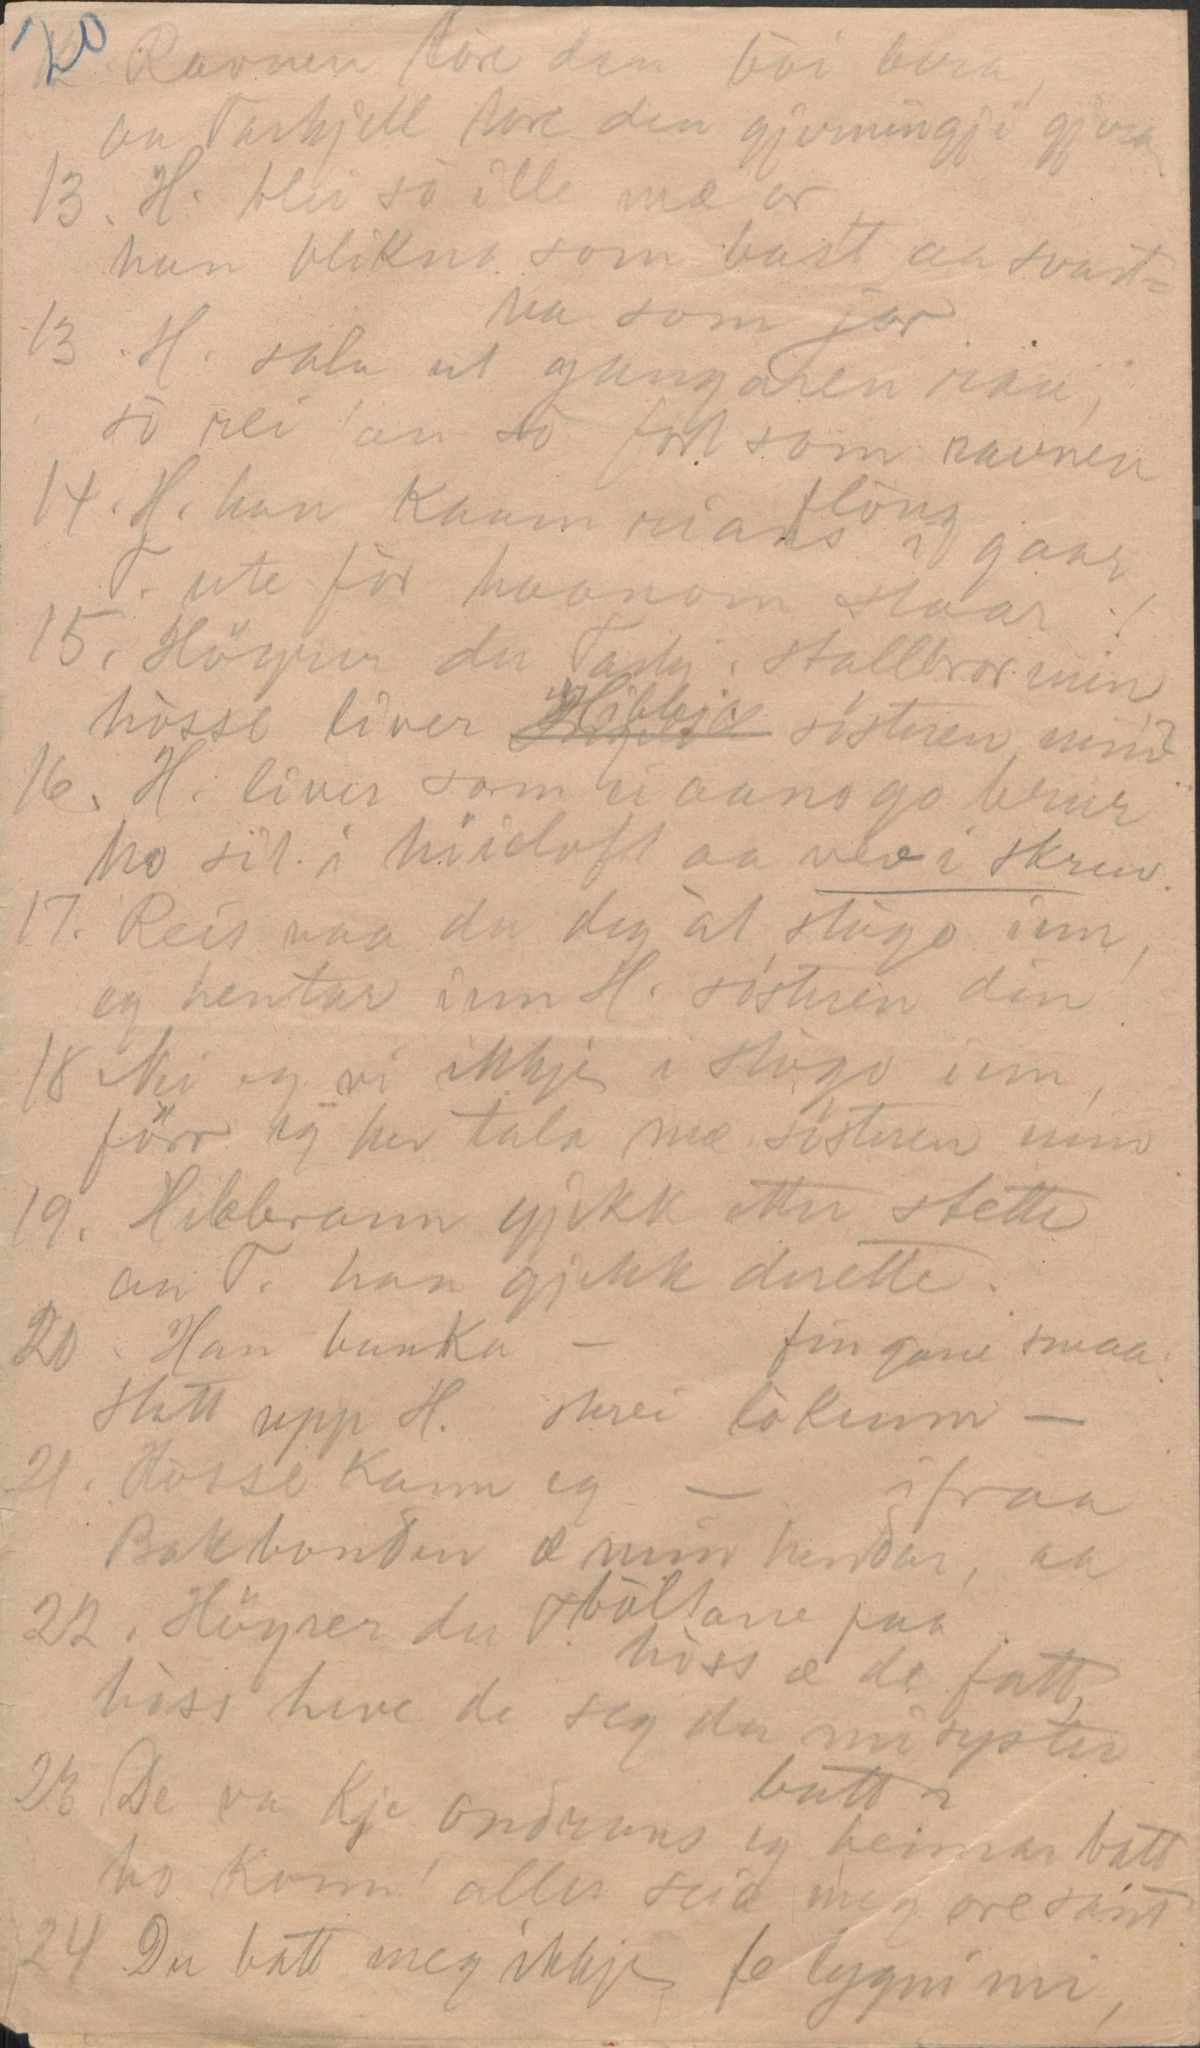 20
12. Ravnen tore den bòi bera,
aa Tarkjell tore den gjerningji gjera
13. H. blei sò ille mæ er
han blikna som bast aa svart=
na som jor
13. H. sala ut gangaren raa,
sò rei 'an so fort som ravnen
flòug
14. H. han kaam rians i gaar
T. ute fòr haanom staar!
15. Höyrer du Tarkj. stallbror min
hòsse liver Hibbja sisteren min?
16. H. liver som ei aanogo brur
ho sit i höieloft aa vev i skruv.
17. Reis naa du deg àt stògo inn,
eg hentar inn H. sisteren din
18 Nei eg vi ikkje i stògo inn,
förr eg hev tala mæ sisteren min
19. Hibbrann gjikk etter stette
aa T. han gjekk derette.
20. Han banka – fingane smaa.
statt upp H. skrei lokunn –
21. Hòsse kann eg – ifraa
Bakbonden æ min hendar, aa
bòltane paa
22. Höyrer du T. hòss æ de fatt,
hòss heve de seg du mi syster
batt?
23 De va kje ondrans eg heiman batt
ho konn' aller seia meg ore sant
24 Du batt meg ikkje fe lygni mi,